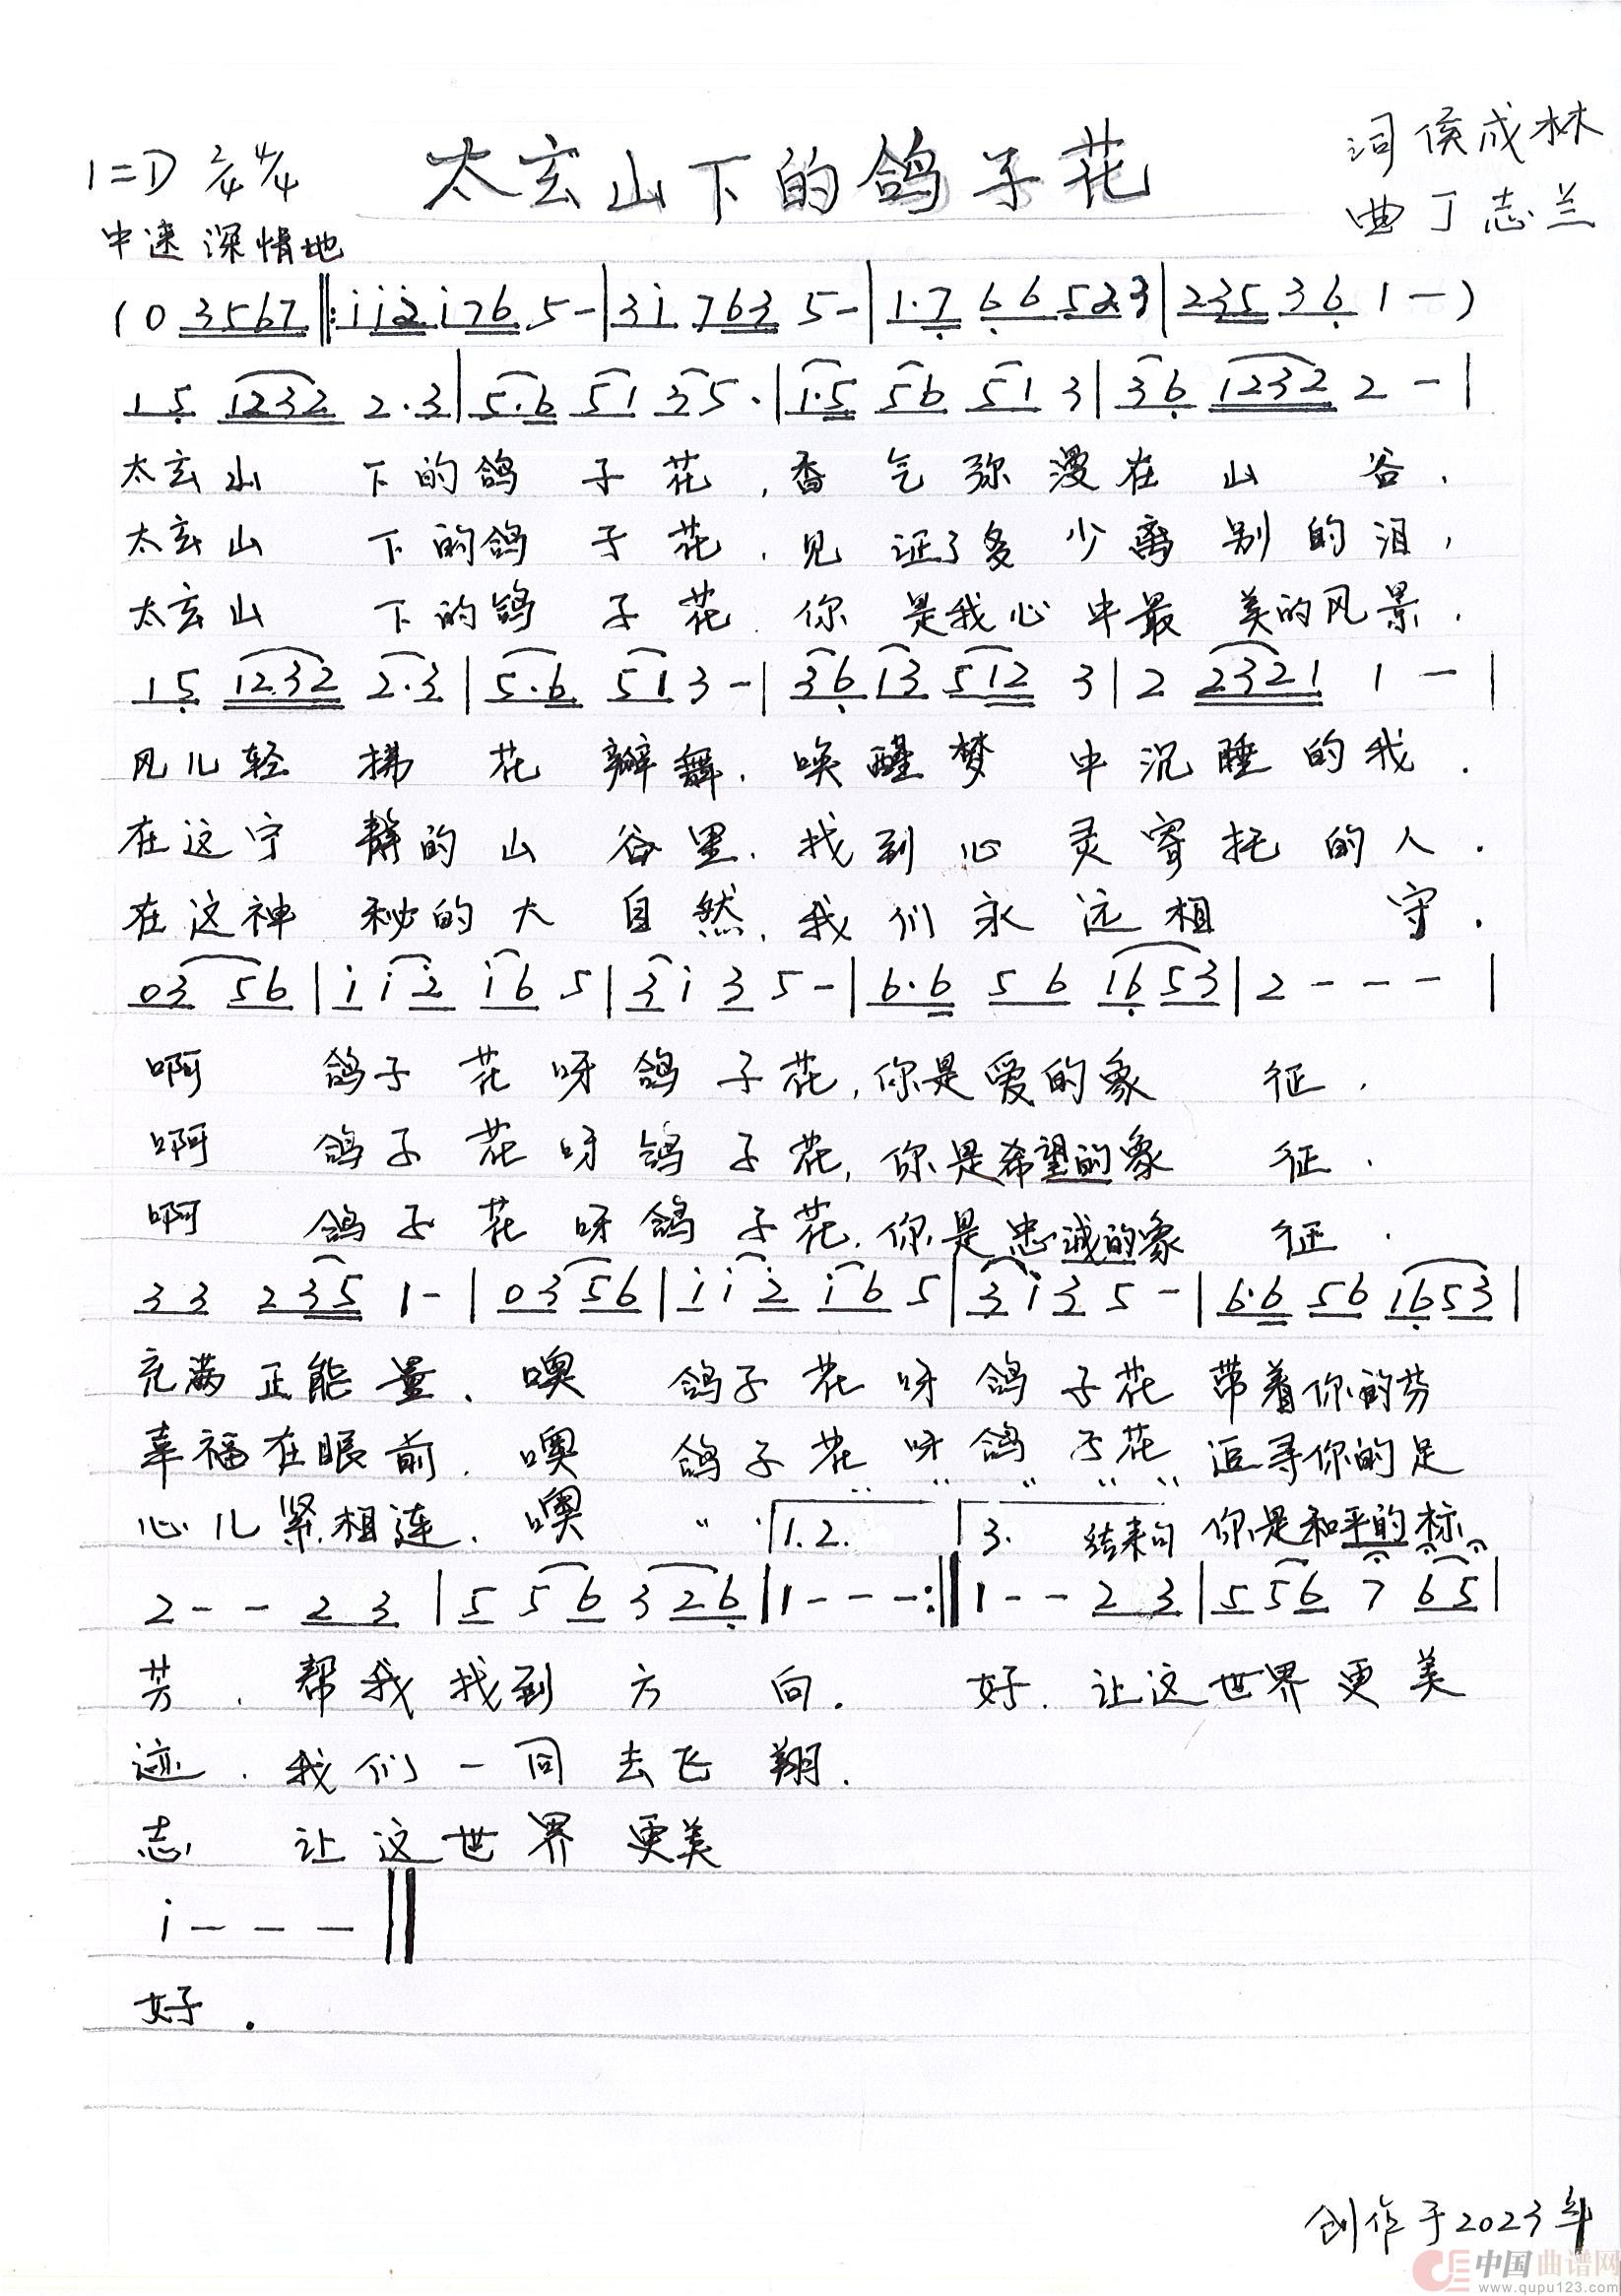 1=D 2/4 4/4 太玄山下的鸽子花 词 侯成林
中速 深情地 曲 丁志兰
(0 3567 ‖: i i 2̇ i 76 5 - | 3 i 763 5 - | 1·7 66 523 | 235 36 1 - )
15 1232 2·3 | 5·6 51 35· | 1·5 56 51 3 | 36 1232 2 - |
太玄山 下的鸽 子花,香气弥漫在山谷.
太玄山 下的鸽 子花.见证了多少离别的泪,
太玄山 下的鸽 子花.你是我心中最美的风景.
15 1232 2·3 | 5·6 51 3 - | 36 13 512 3 | 2 2321 1 - |
风儿轻拂花瓣舞.唤醒梦中沉睡的我.
在这宁静的山谷里.找到心灵寄托的人.
在这神秘的大自然.我们永远相守.
03 56 | i i 2̇ i6 5 | 3 i 3 5 - | 6·6 56 1653 | 2 - - - |
啊 鸽子花呀鸽子花,你是爱的象征.
啊 鸽子花呀鸽子花,你是希望的象征.
啊 鸽子花呀鸽子花.你是忠诚的象征.
33 235 1 - | 03 56 | i i 2̇ i6 5 | 3 i 3 5 - | 6·6 56 1653 |
充满正能量、噢 鸽子花呀鸽子花 带着你的芬
幸福在眼前.噢 鸽子花呀鸽子花 追寻你的足
心儿紧相连.噢 〃 〃 〃 〃 〃 〃 1.2. 3. 结束句 你是和平的标
2 - - 23 | 5 56 326 | 1 - - - :‖ 1 - - 23 | 5 56 7 65 |
芳.帮我找到方向. 好.让这世界更美
迹.我们一同去飞翔.
志 让这世界更美
i - - - ‖
好.
创作于2023年
中国曲谱网
www.qupu123.com